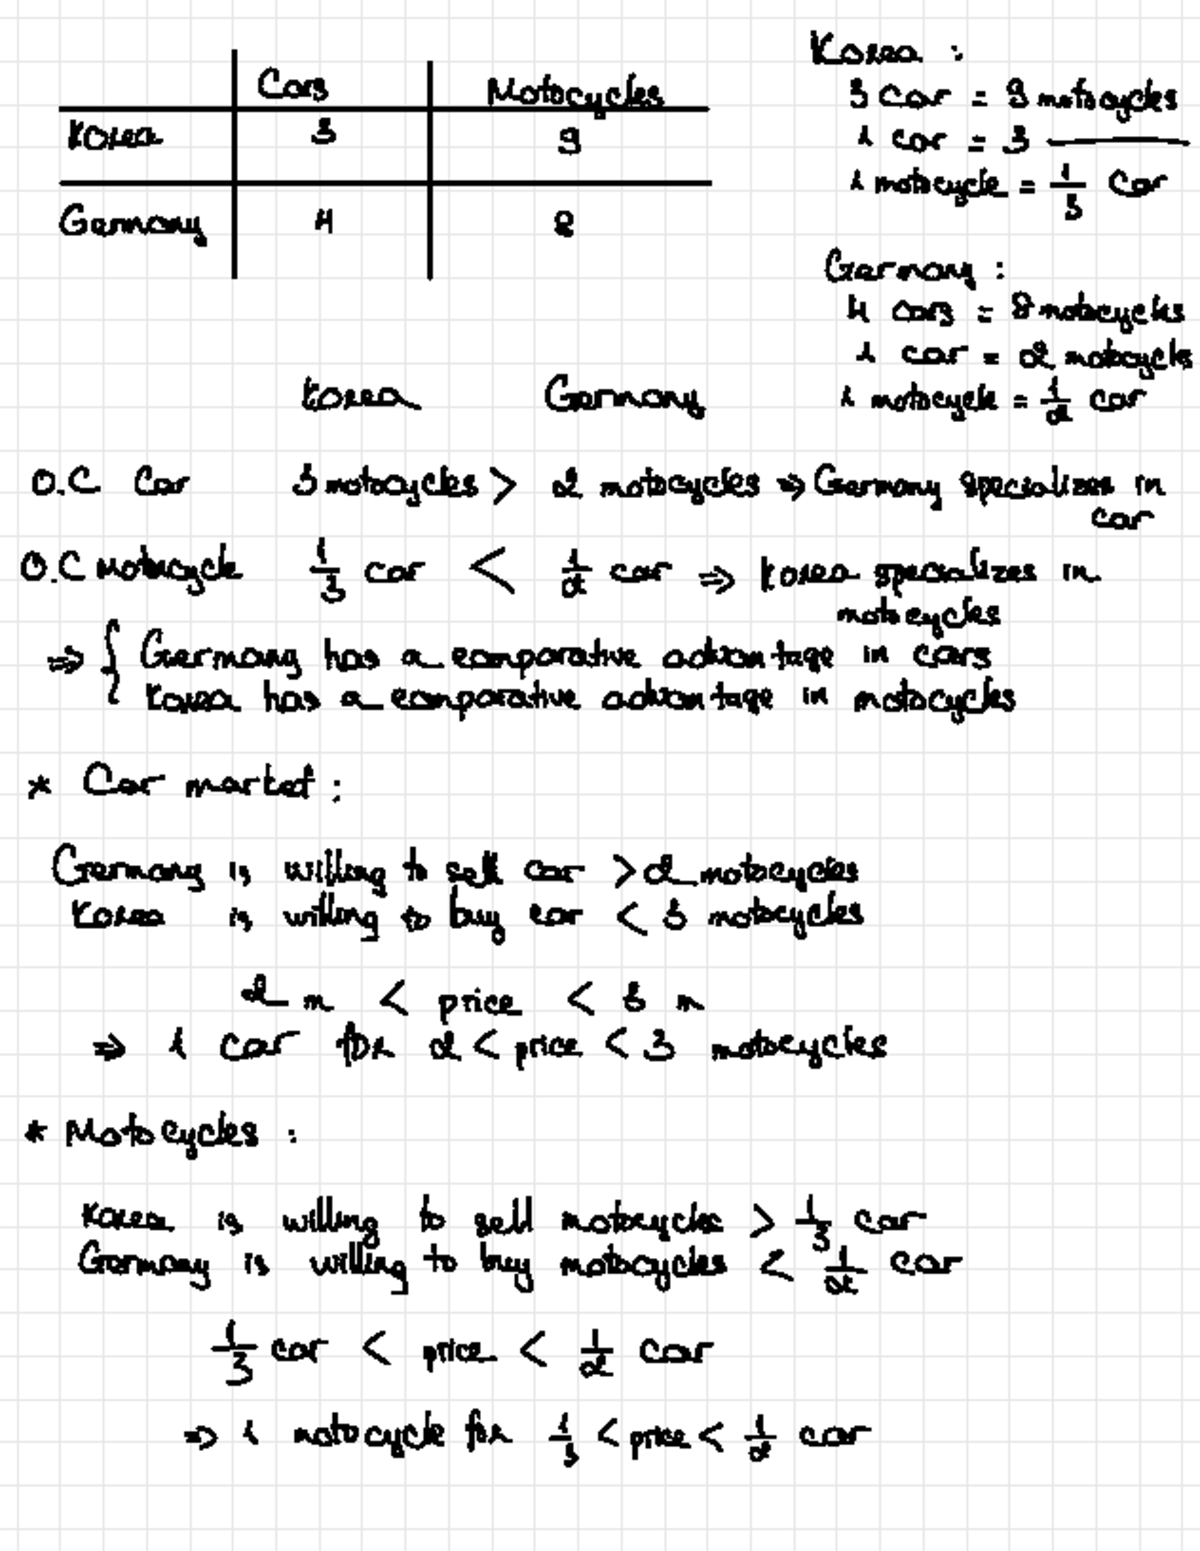 Cars Motocycles
Korea 3 9
Germany 4 8
Korea :
3 Car = 9 motocycles
1 car = 3 ———
1 motocycle = 1/3 Car
Germany :
4 cars = 8 motocycles
1 car = 2 motocycles
1 motocycle = 1/2 car
Korea Germany
O.C Car 3 motocycles > 2 motocycles => Germany specializes in
car
O.C Motocycle 1/3 car < 1/2 car => Korea specializes in
motocycles
=> { Germany has a comparative advantage in cars
Korea has a comparative advantage in motocycles
* Car market :
Germany is willing to sell car > 2 motocycles
Korea is willing to buy car < 3 motocycles
2 m < price < 3 m
=> 1 car for 2 < price < 3 motocycles
* Motocycles :
Korea is willing to sell motocycles > 1/3 car
Germany is willing to buy motocycles < 1/2 car
1/3 car < price < 1/2 car
=> 1 motocycle for 1/3 < price < 1/2 car